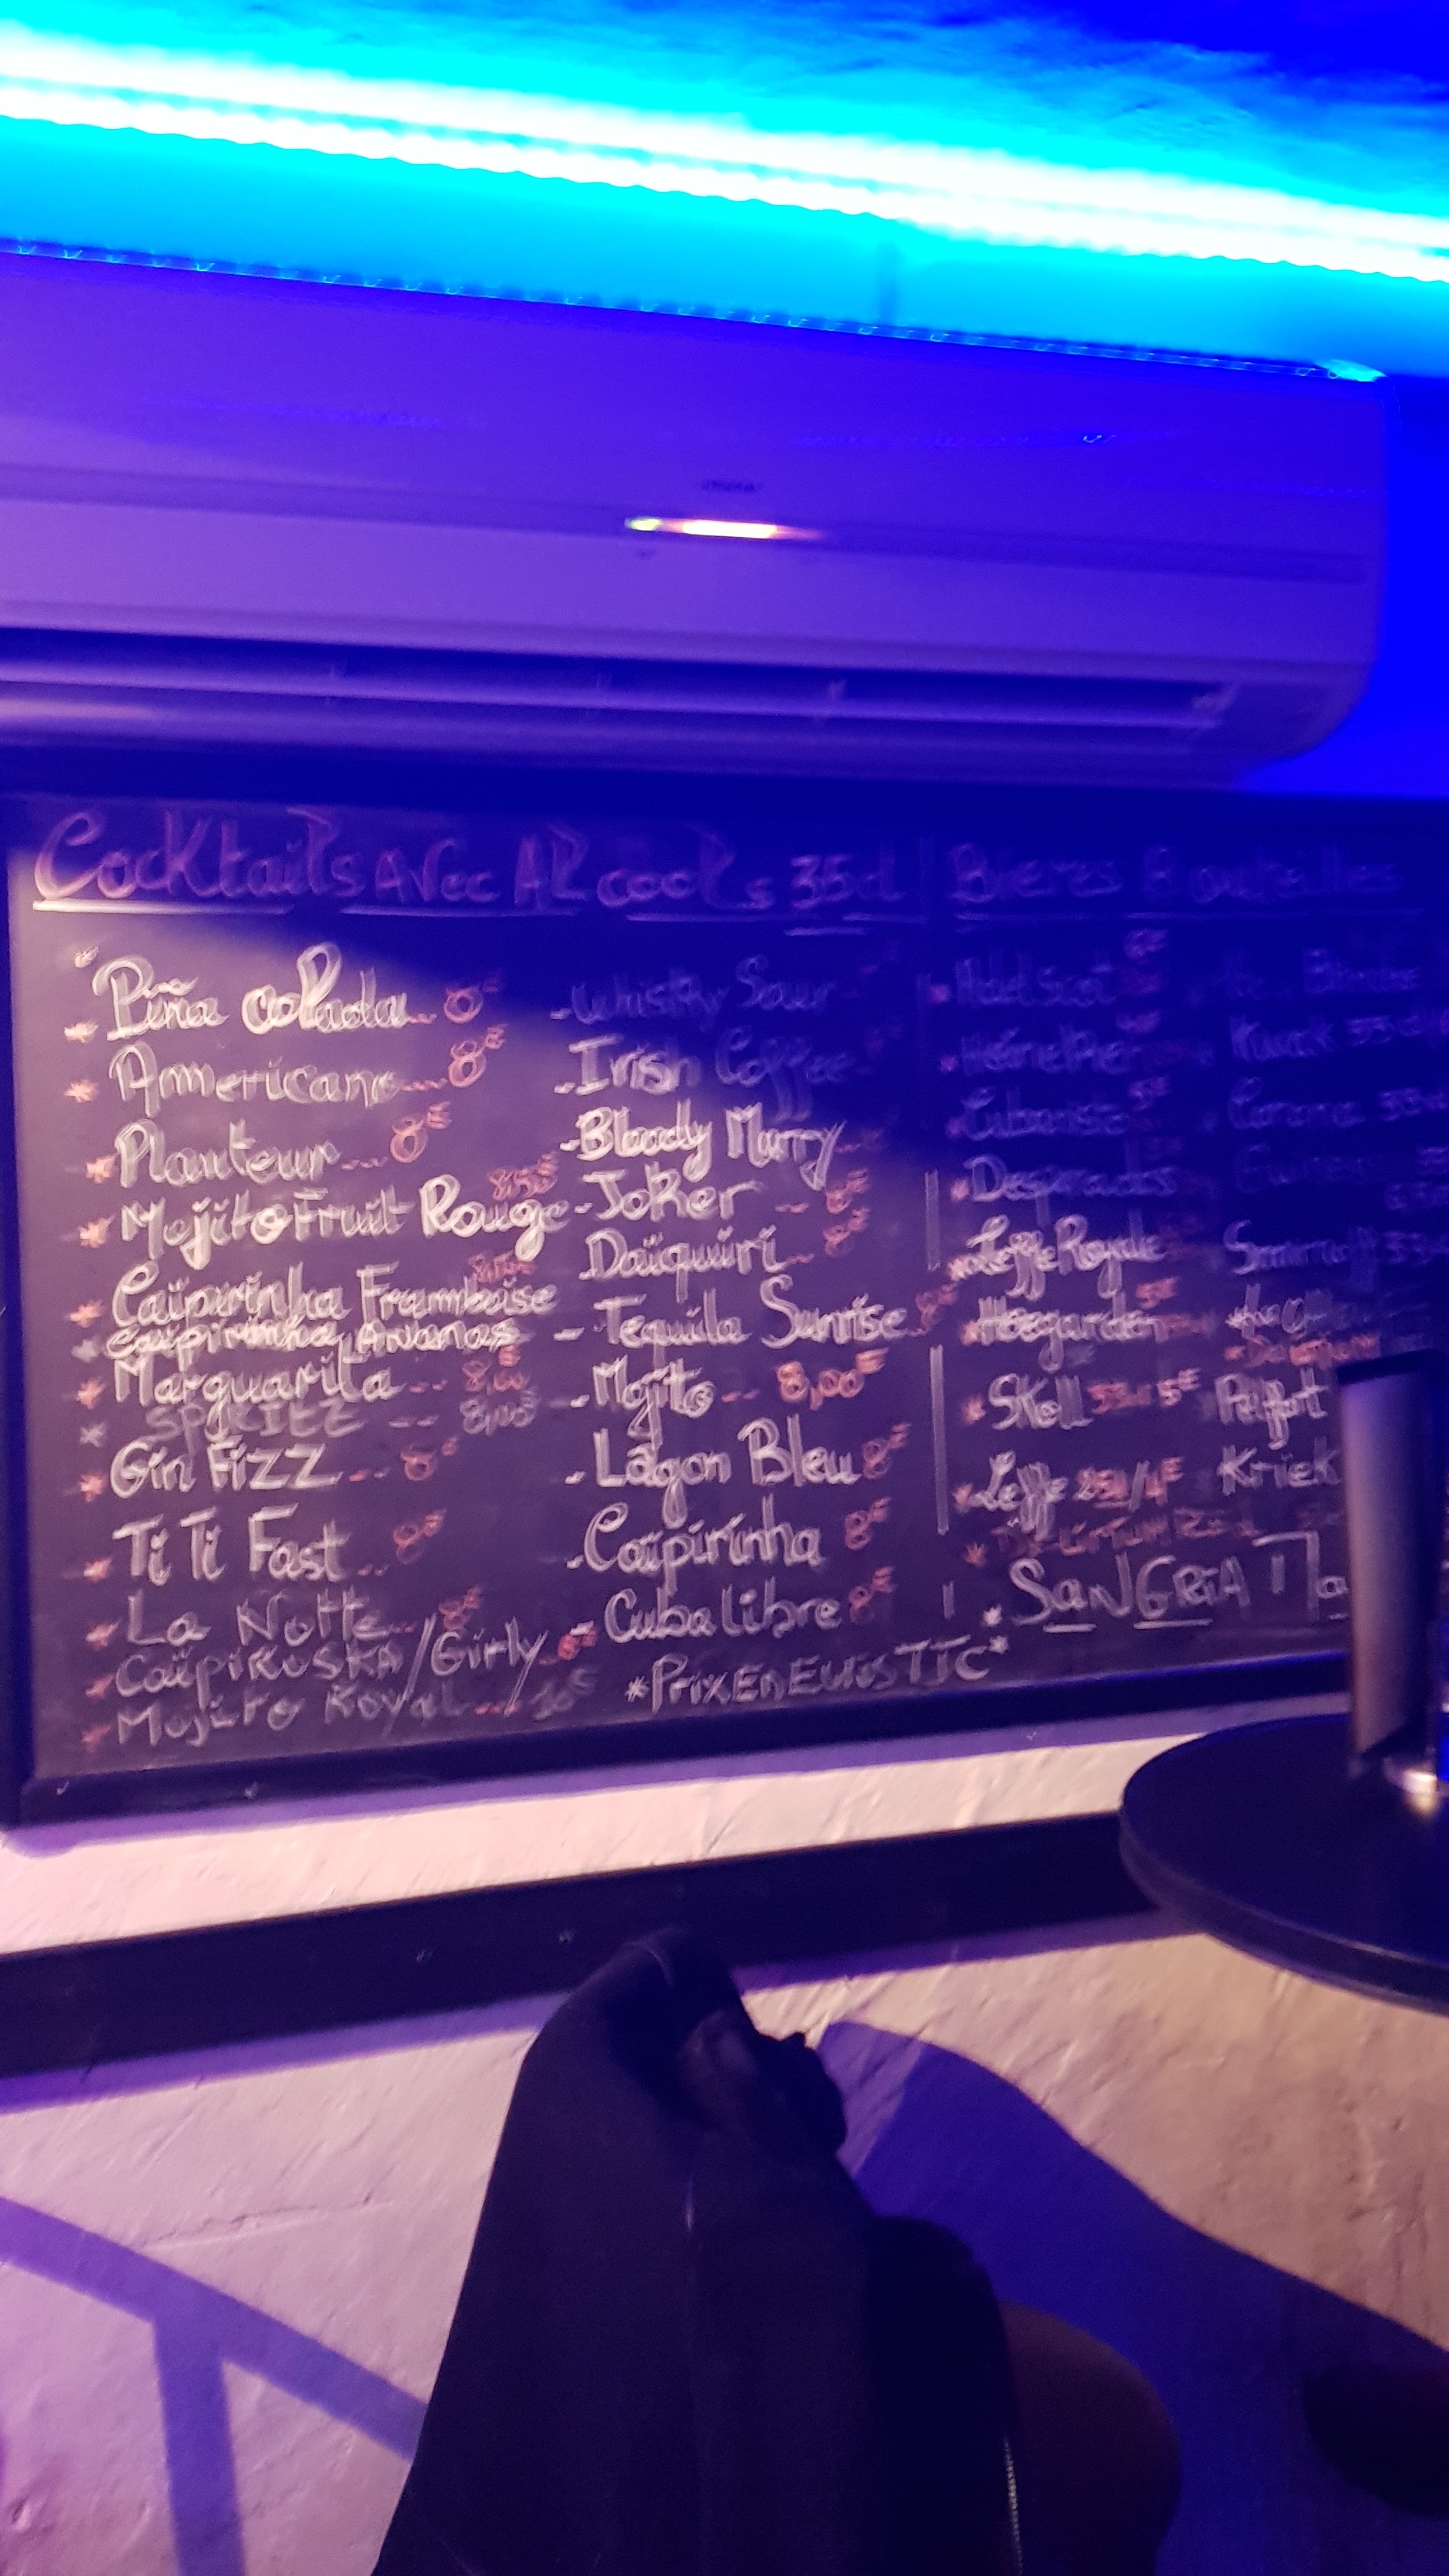 Cocktails Avec Alcools 35cl
Piña Colada... 8€
Americano.... 8€
Planteur.... 8€
Mojito Fruit Rouge
Caïpirinha Framboise
Caïpirinha Ananas
Marguarita ---
SPRITZ --- 8,00€
Gin Fizz ... 8€
Ti Ti Fast ... 8€
La Notte... 8€
CaïpiROSKA/Girly
Mojito Royal ... 10€
- Whisky Sour
- Irish Coffee
- Bloody Marry
- Joker -- 8€
Daïquiri .. 8€
- Tequila Sunrise 8€
- Mojito -- 8,00€
- Lagon Bleu 8€
- Caïpirinha 8€
- Cuba libre 8€
*Prix En Euros TTC*
Bières Bouteilles
Cubanisto 5€
Desperados
Leffe Royale
Hoegarden 5€
Skoll 33cl 5€
Leffe 25cl/4€
SANGRIA
Kwak 33cl
Corona 33cl
Smirnoff 33cl
Pelfort
Kriek